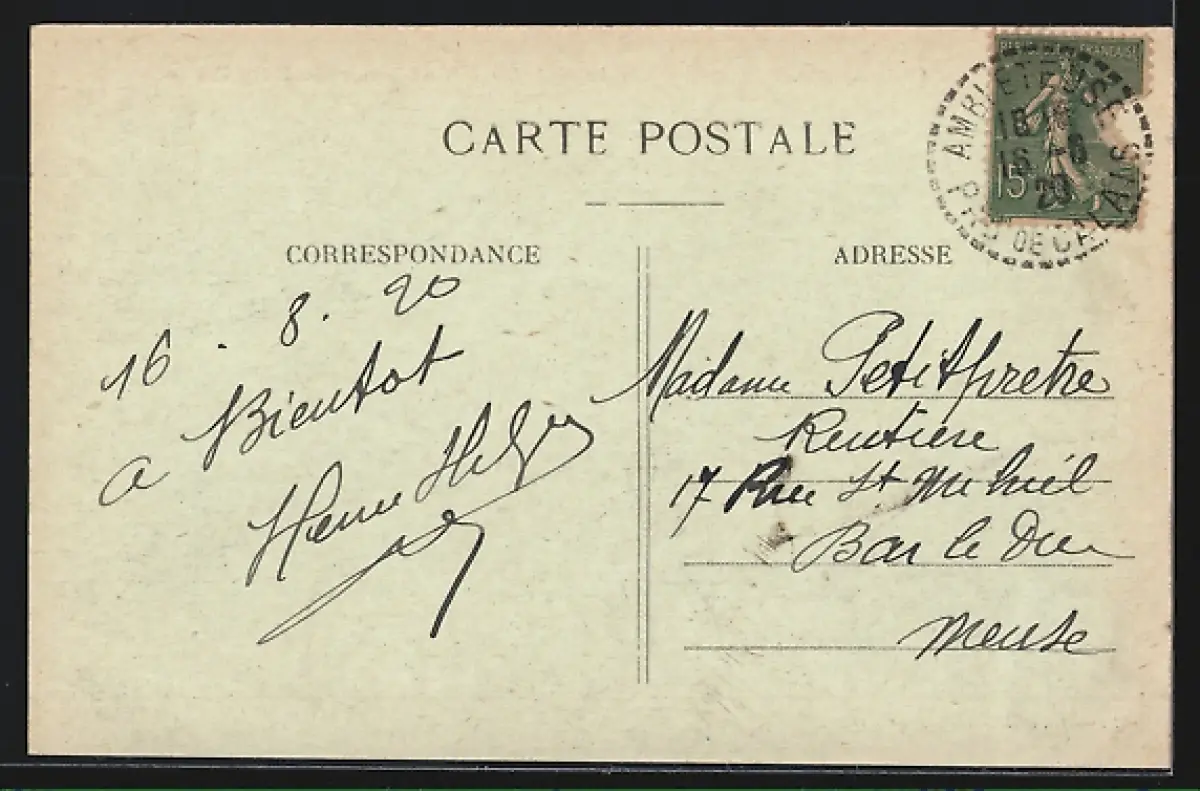 CARTE POSTALE
REPUBLIQUE FRANÇAISE
15
AMBLETEUSE
16 -8
20
PAS DE CALAIS
CORRESPONDANCE
16 . 8 . 20
a Bientot
ADRESSE
Madame Petitpretre
Rentiere
17 Rue St Mihiel
Bar le Duc
Meuse